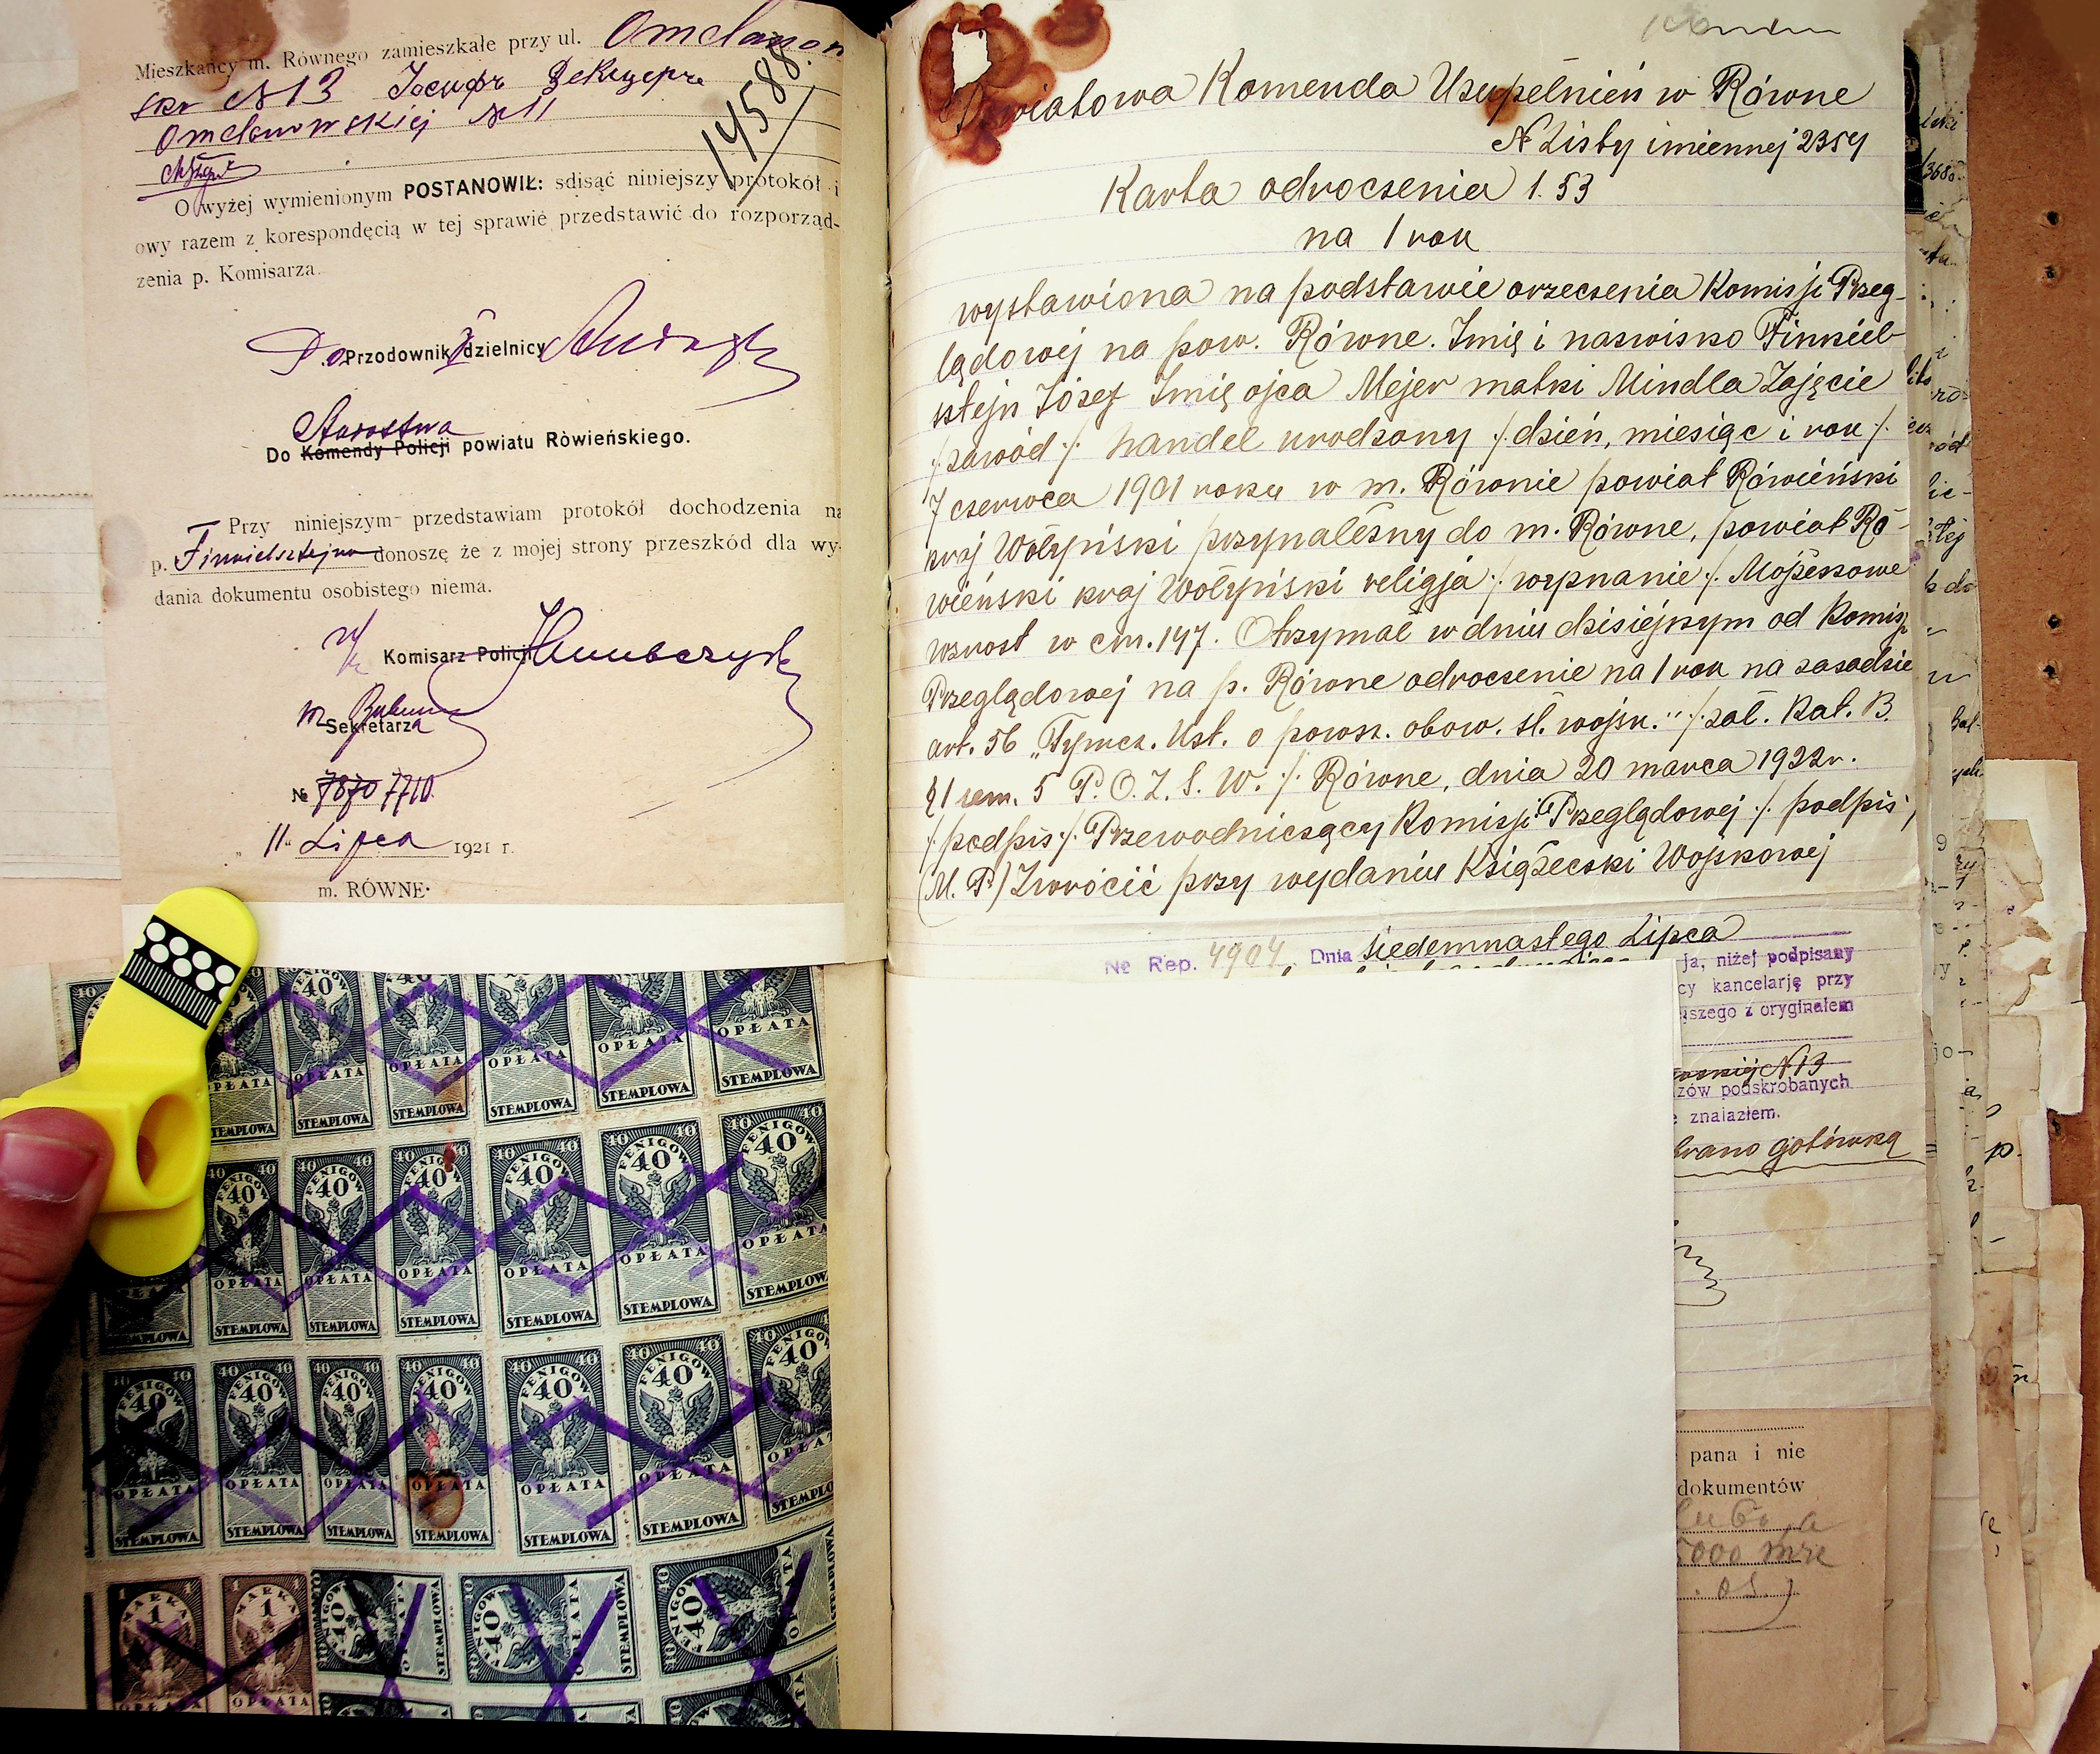 Mieszkańcy m. Równego zamieszkałe przy ul. Omelanon
skr № 13
Omelanowskiéj № 11
14588
O wyżej wymienionym POSTANOWIŁ: sdisąć niniejszy protokół i
owy razem z korespondęcią w tej sprawie przedstawić do rozporząd-
zenia p. Komisarza.
P.o. Przodownik dzielnicy
Starostwa
Do Komendy Policji powiatu Ròwieńskiego.
Przy niniejszym przedstawiam protokół dochodzenia na
p. Finkielsztejna donoszę że z mojej strony przeszkód dla wy-
dania dokumentu osobistego niema.
Komisarz Policji
Sekretarza
№ 7870 7710.
" 11 " Lipca 1921 r.
m. RÓWNE·
40 FENIGÓW 40
OPŁATA
STEMPLOWA
1 MARKA 1
OPŁATA
Powiatowa Komenda Uzupełnień w Równe
№ Listy imiennej 2354
Karta odroczenia l. 53
na 1 rok
wystawiona na podstawie orzeczenia Komisji Przeg-
lądowej na pow. Równe. Imię i nazwisko Finkiel-
sztejn Józef Imię ojca Mejer matki Mindla Zajęcie
/zawód/. handel urodzony /.dzień, miesiąc i rok/.
7 czerwca 1901 roku w m. Równie powiat Rówieński
kraj Wołyński przynależny do m. Równe, powiat Ró-
wieński kraj Wołyński religja /wyznanie/. Mojżeszowe
wzrost w cm. 147. Otrzymał w dniu dzisiejszym od Komisji
Przeglądowej na p. Równe odroczenie na 1 rok na zasadzie
art. 56 „Tymcz. Ust. o powsz. obow. sł. wojsk." /.zał. Kat. B.
§1 sem. 5 P.O.Z.S.W./. Równe, dnia 20 marca 1922 r.
/podpis/. Przewodniczący Komisji Przeglądowej /. podpis/
(M.P.) Zwrócić przy wydaniu Książeczki Wojskowej
№ Rep. 4904. Dnia siedemnastego Lipca
ja, niżej podpisany
cy kancelarję przy
jszego z oryginałem
№ 13
zów podskrobanych
znalazłem.
brano gotówką
pana i nie
dokumentów
5000 mk